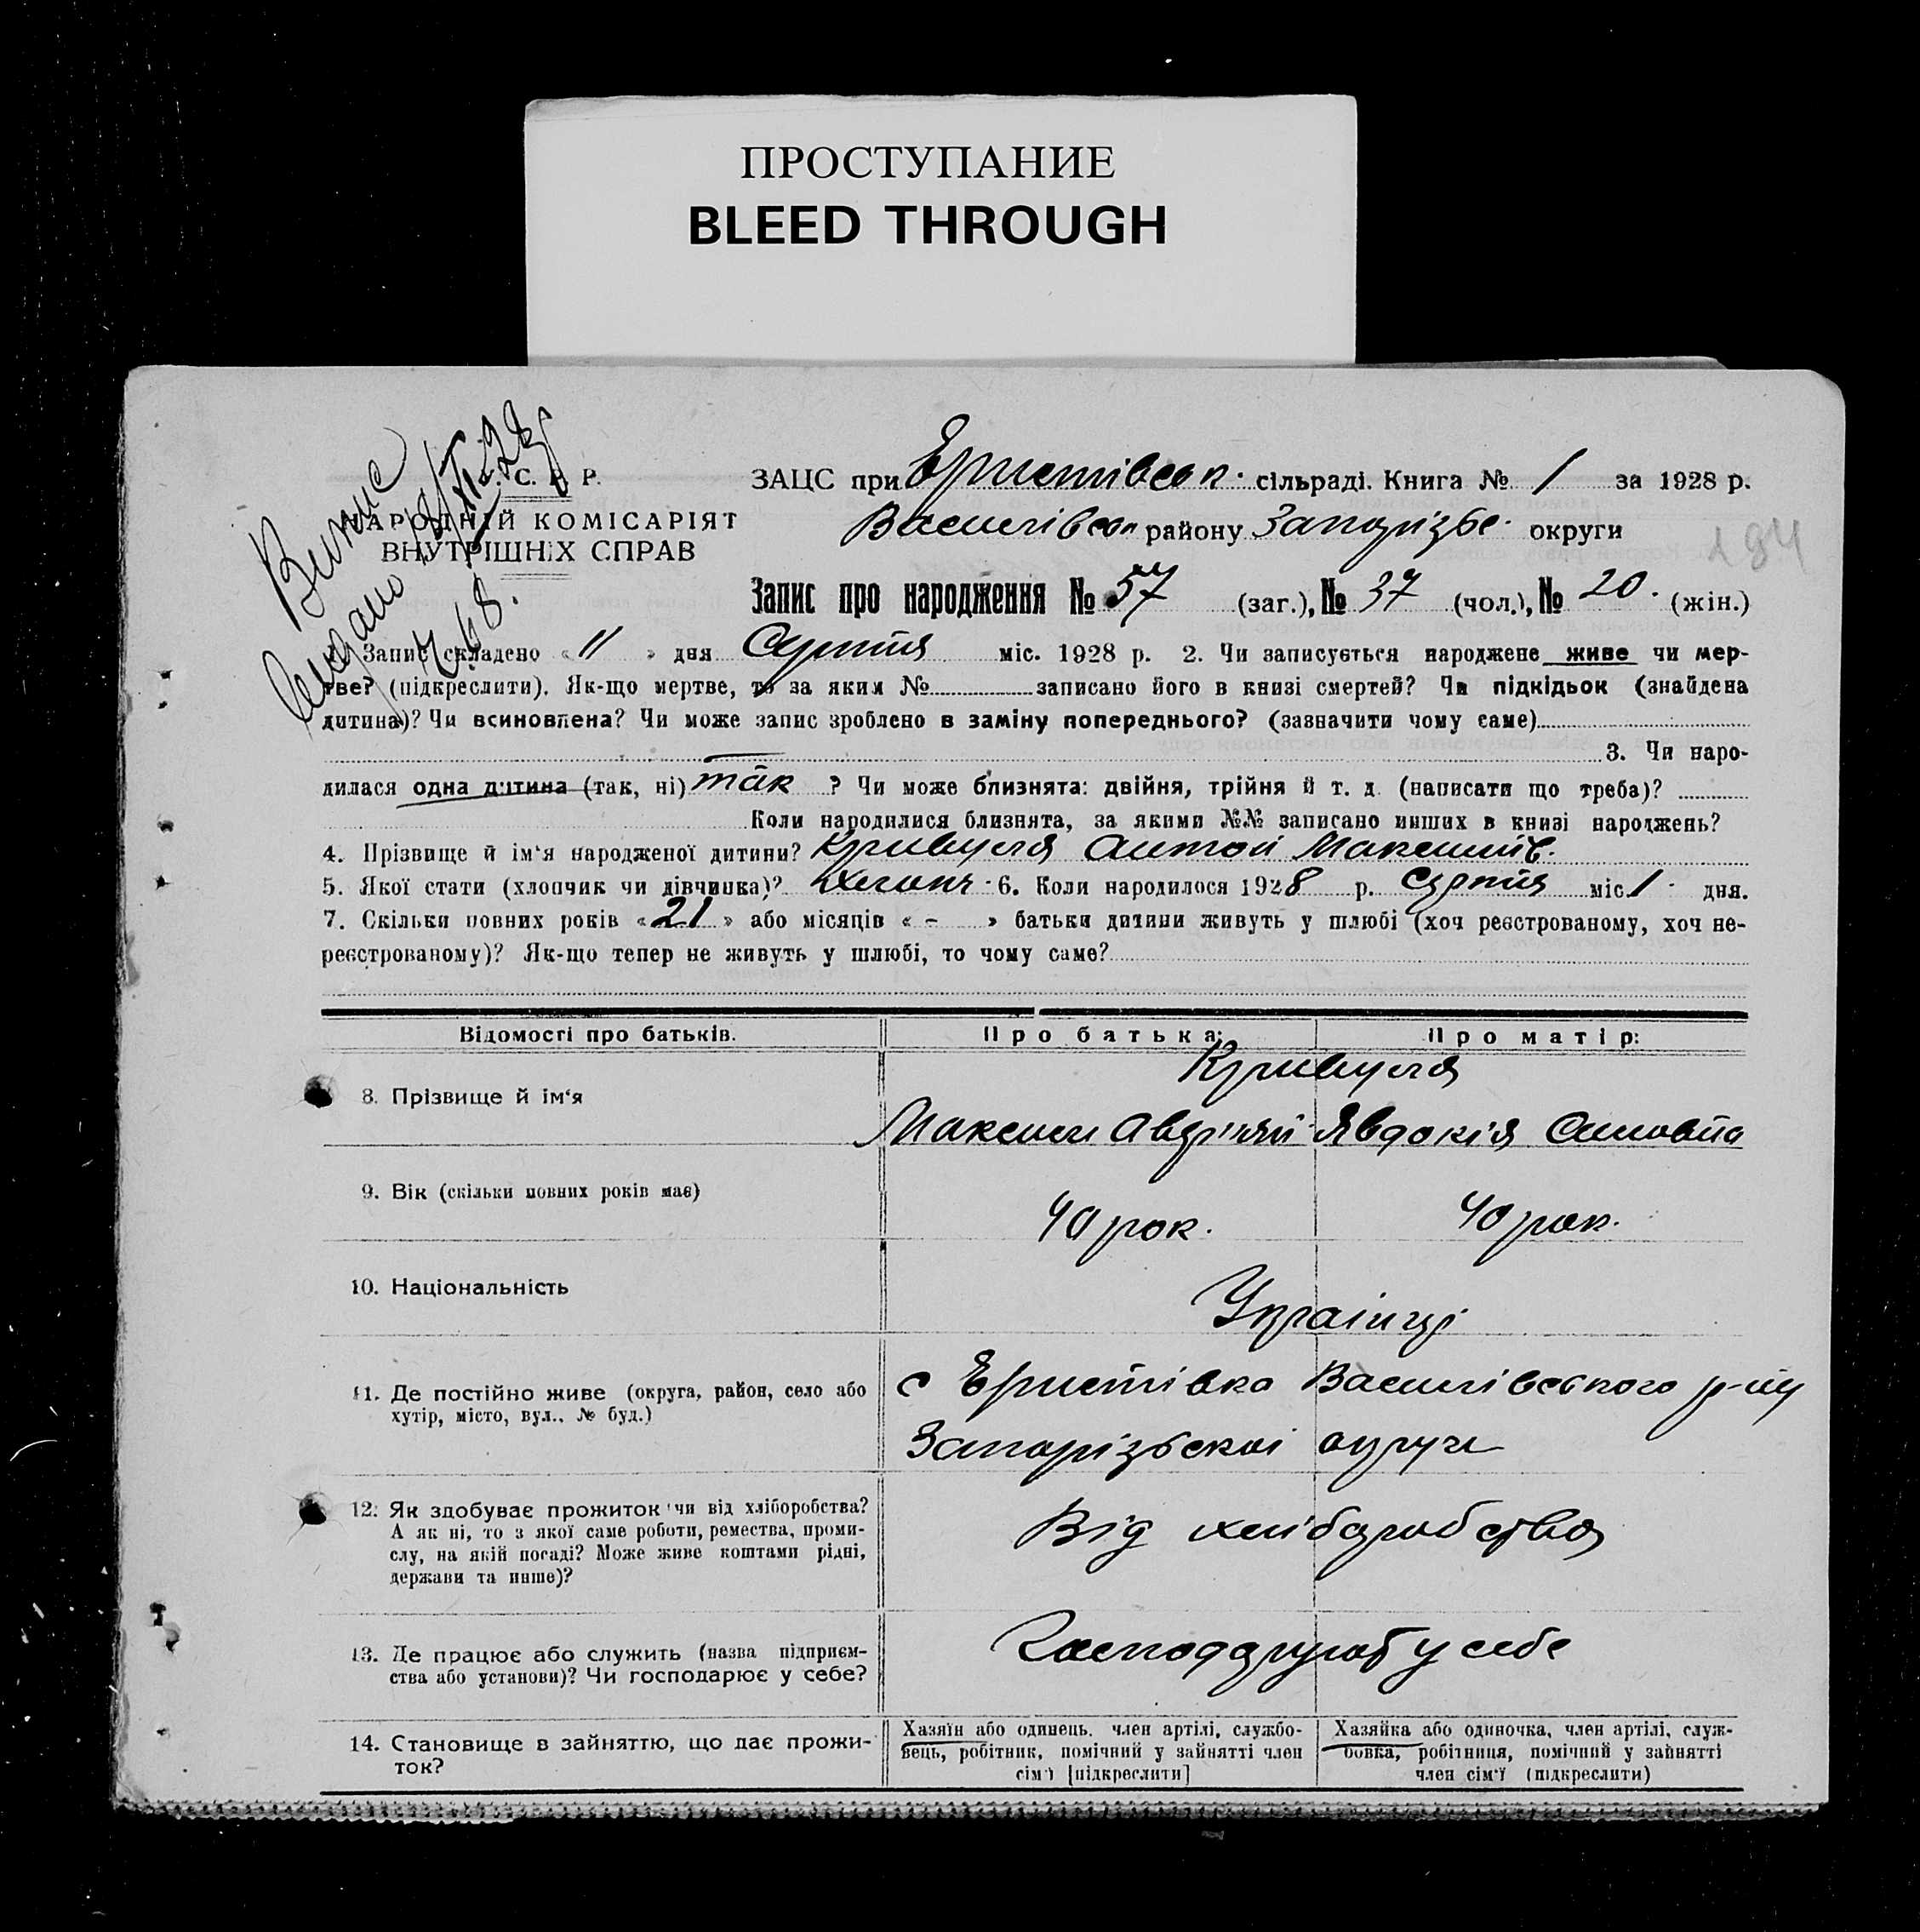 ПРОСТУПАНИЕ
BLEED THROUGH
С. Р Р.
НАРОДНІЙ КОМІСАРІЯТ
ВНУТРІШНІХ СПРАВ
ЗАЦС при Еристівськ. сільраді. Книга № 1 за 1928 р.
Василівськ району Запорізьс. округи
194
Запис про народження № 57 (заг.), № 37 (чол.), № 20. (жін.)
Запис складено « 11 » дня Серпня міс. 1928 р. 2. Чи записується народжене живе чи мер-
тве? (підкреслити). Як-що мертве, то за яким № записано його в книзі смертей? Чи підкідьок (знайдена
дитина)? Чи всиновлена? Чи може запис зроблено в заміну попереднього? (зазначити чому саме)
3. Чи наро-
дилася одна дитина (так, ні) так ? Чи може близнята: двійня, трійня й т. д. (написати що треба)?
Коли народилися близнята, за якими №№ записано инших в книзі народжень?
4. Прізвище й ім'я народженої дитини? Кривуля Антон Максимів.
5. Якої стати (хлопчик чи дівчинка)? Хлопч. 6. Коли народилося 1928 р. серпня міс. 1. дня.
7. Скільки повних років « 21 » або місяців « - » батьки дитини живуть у шлюбі (хоч реєстрованому, хоч не-
реєстрованому)? Як-що тепер не живуть у шлюбі, то чому саме?
Відомості про батьків. Про батька: Про матір:
Кривуля
8. Прізвище й ім'я
Максим Явдокія
9. Вік (скільки повних років має)
40 рок. 40 рок.
10. Національність
Українці
11. Де постійно живе (округа, район, село або
хутір, місто, вул., № буд.)
с Еристівка Василівського р-ну
Запорізької округи
12. Як здобуває прожиток чи від хліборобства?
А як ні, то з якої саме роботи, ремества, проми-
слу, на якій посаді? Може живе коштами рідні,
держави та инше)?
Від хліборобства
13. Де працює або служить (назва підприєм-
ства або установи)? Чи господарює у себе?
у себе
14. Становище в зайняттю, що дає прожи-
ток?
Хазяїн або одинець. член артілі, службо-
вець, робітник, помічний у зайнятті член
сім'ї [підкреслити]
Хазяйка або одиночка, член артілі, служ-
бовка, робітниця, помічний у зайнятті
член сім'ї (підкреслити)